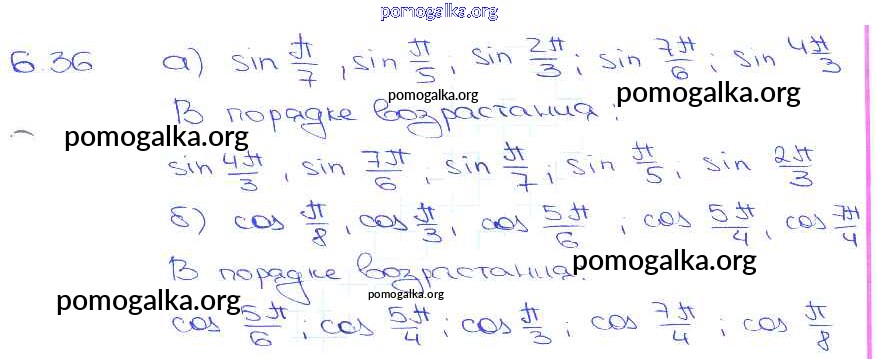 pomogalka.org
6.36 а) sin π/7, sin π/5; sin 2π/3; sin 7π/6; sin 4π/3
pomogalka.org pomogalka.org
В порядке возрастания:
pomogalka.org
sin 4π/3, sin 7π/6, sin π/7; sin π/5; sin 2π/3
б) cos π/8, cos π/3, cos 5π/6; cos 5π/4, cos 7π/4
В порядке возрастания: pomogalka.org
pomogalka.org pomogalka.org
cos 5π/6; cos 5π/4; cos π/3; cos 7π/4; cos π/8